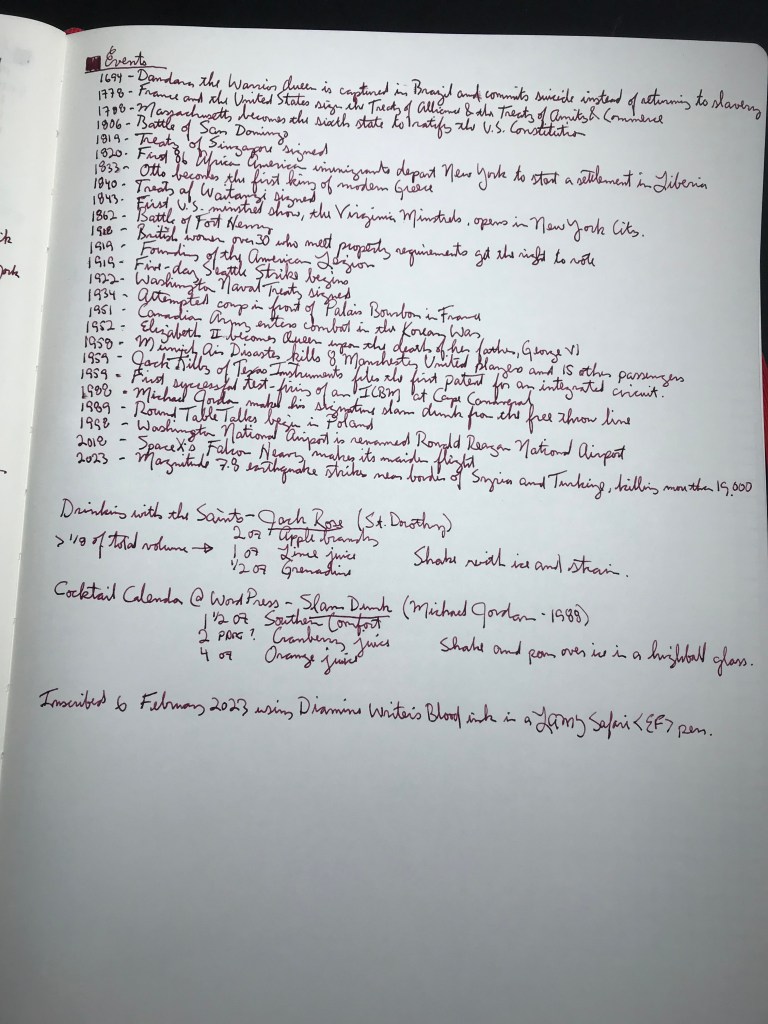 Events
1694 - Dandara, the Warrior Queen is captured in Brazil and commits suicide instead of returning to slavery
1778 - France and the United States sign the Treaty of Alliance & the Treaty of Amity & Commerce
1788 - Massachusetts becomes the sixth state to ratify the U.S. Constitution
1806 - Battle of San Domingo
1819 - Treaty of Singapore signed
1820 - First 86 African American immigrants depart New York to start a settlement in Liberia
1833 - Otto becomes the first king of modern Greece
1840 - Treaty of Waitangi signed
1843 - First U.S. minstrel show, the Virginia Minstrels, opens in New York City.
1862 - Battle of Fort Henry
1918 - British women over 30 who meet property requirements get the right to vote
1919 - Founding of the American Legion
1919 - Five-day Seattle Strike begins
1922 - Washington Naval Treaty signed
1934 - Attempted coup in front of Palais Bourbon in France
1951 - Canadian Army enters combat in the Korean War
1952 - Elizabeth II becomes Queen upon the death of her father, George VI
1958 - Munich Air Disaster kills 8 Manchester United players and 15 other passengers
1959 - Jack Kilby of Texas Instruments files the first patent for an integrated circuit.
1959 - First successful test-firing of an ICBM at Cape Canaveral
1988 - Michael Jordan makes his signature slam dunk from the free throw line
1989 - Round Table Talks begin in Poland
1998 - Washington National Airport is renamed Ronald Reagan National Airport
2018 - SpaceX's Falcon Heavy makes its maiden flight
2023 - Magnitude 7.8 earthquake strikes near border of Syria and Turkey, killing more than 19,000
Drinking with the Saints - Jack Rose (St. Dorothy)
2 oz Apple brandy
> 1/8 of total volume → 1 oz Lime juice
1/2 oz Grenadine Shake with ice and strain.
Cocktail Calendar @ WordPress - Slam Dunk (Michael Jordan - 1988)
1 1/2 oz Southern Comfort
2 parts? Cranberry juice
4 oz Orange juice Shake and pour over ice in a highball glass.
Inscribed 6 February 2023 using Diamine Writer's Blood ink in a Lamy Safari <EF> pen.